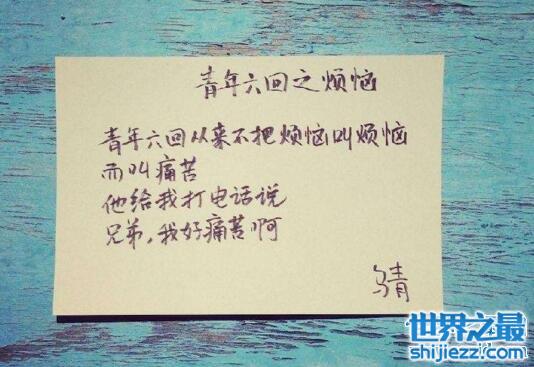 青年六回之烦恼
青年六回从来不把烦恼叫烦恼
而叫痛苦
他给我打电话说
兄弟,我好痛苦啊
乌青
世界之最
shijiezz.com